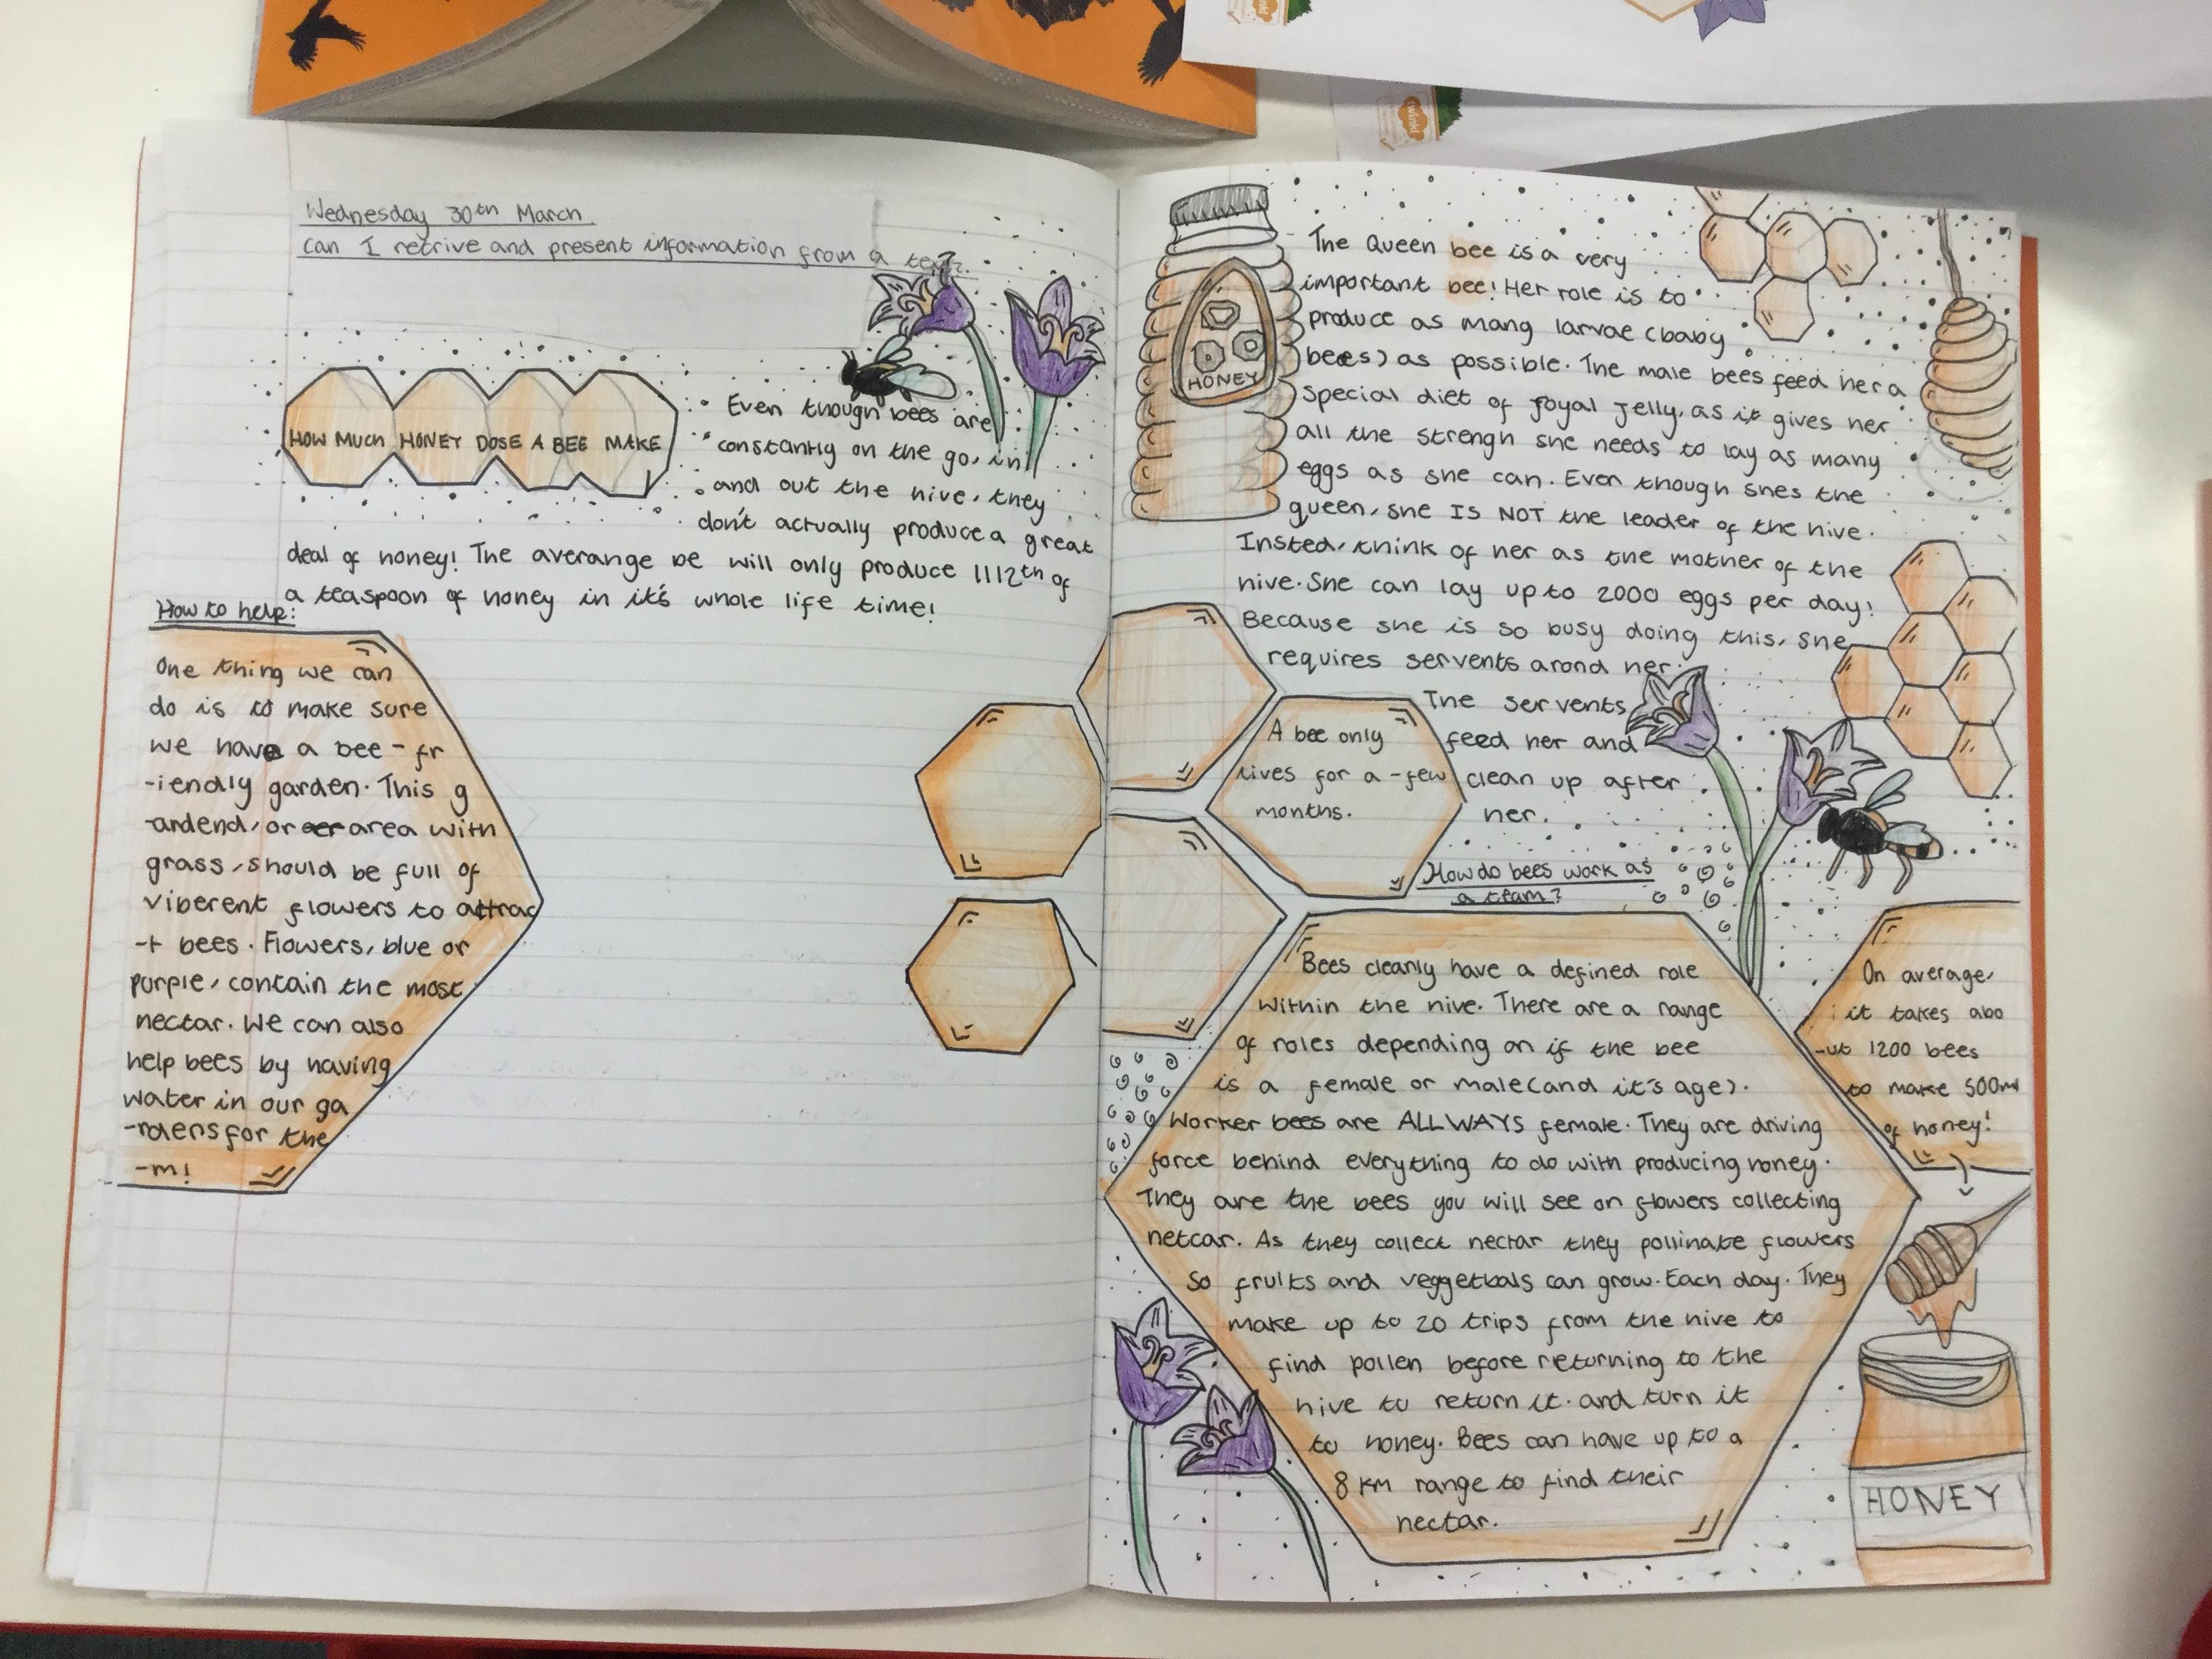 Wednesday 30th March
Can I retrive and present information from a text?
HOW MUCH HONEY DOSE A BEE MAKE
Even though bees are
constantly on the go, in
and out the hive, they
don't actually produce a great
deal of honey! The averange be will only produce 1112th of
a teaspoon of honey in it's whole life time!
How to help:
One thing we can
do is to make sure
we have a bee - fr
-iendly garden. This g
-ardend, or area with
grass, should be full of
viberent flowers to attrac
-t bees. Flowers, blue or
purple, contain the most
nectar. We can also
help bees by having
water in our ga
-rdens for the
-m!
HONEY
The Queen bee is a very
important bee! Her role is to
produce as many larvae (baby
bees) as possible. The male bees feed her a
special diet of royal jelly, as it gives her
all the strengh she needs to lay as many
eggs as she can. Even though shes the
queen, she IS NOT the leader of the hive.
Insted, think of her as the mother of the
hive. She can lay up to 2000 eggs per day!
Because she is so busy doing this, she
requires servents arond her.
The servents
feed her and
clean up after
her.
A bee only
lives for a -few
months.
How do bees work as
a team?
Bees cleanly have a defined role
within the hive. There are a range
of roles depending on if the bee
is a female or male (and it's age).
Worker bees are ALLWAYS female. They are driving
force behind everything to do with producing honey.
They are the bees you will see on flowers collecting
netcar. As they collect nectar they pollinate flowers
so fruits and veggetbals can grow. Each day. They
make up to 20 trips from the hive to
find pollen before returning to the
hive to return it. and turn it
to honey. Bees can have up to a
8 km range to find their
nectar.
On average,
it takes abo
-ut 1200 bees
to make 500ml
of honey!
HONEY